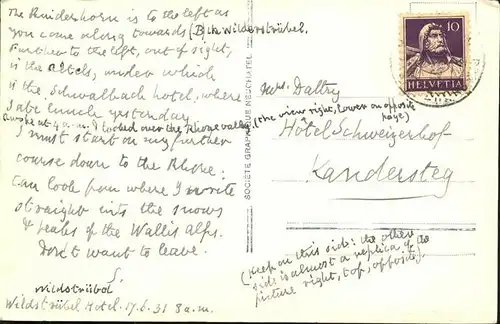 The Rinderhorn is to the left as
you come along towards (B) the Wildstrübel.
Further to the left, out of sight,
is the Altels, under which
is the Schwalbach Hotel, where
I ate lunch yesterday
Awoke at 4 a.m. & looked over the Rhone valley, (the view right, lower on opposite page)
I must start on my further
course down to the Rhone:
Can look from where I write
straight into the snows
& peaks of the Wallis Alps.
Don't want to leave.
S.
Wildstrübel
Wildstrübel Hotel. 17.6.31 8 a.m.
SOCIÉTÉ GRAPHIQUE NEUCHATEL
10
HELVETIA
Mrs Daltry
Hôtel Schweizerhof
Kandersteg
(Keep on this side: the other
side is almost a replica of the
picture right, top, opposite)